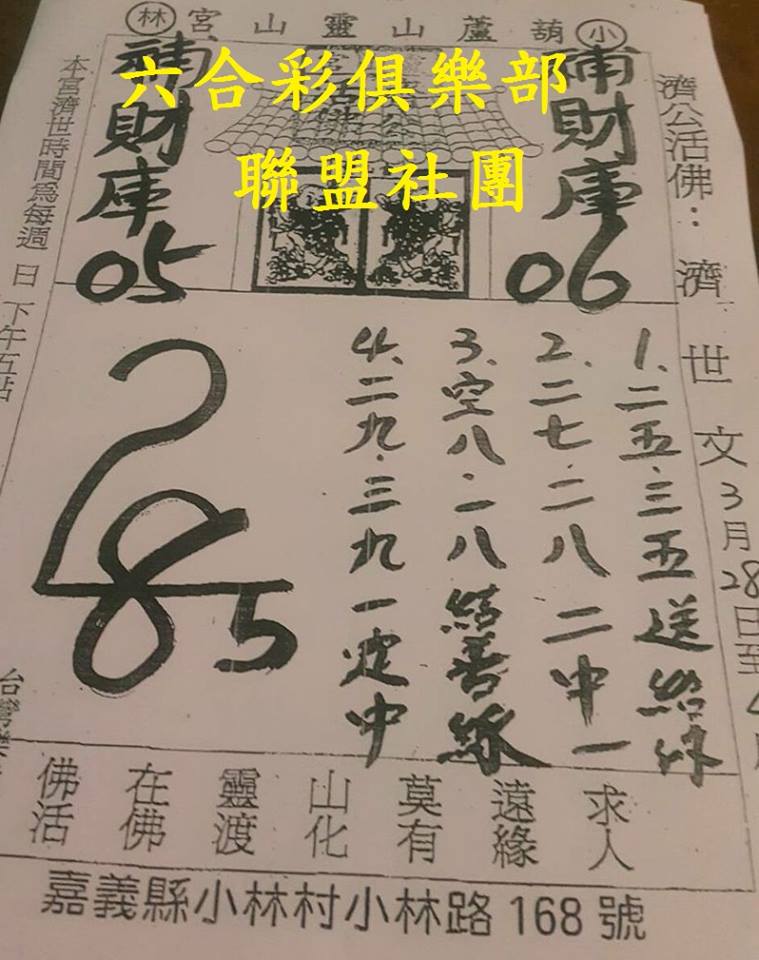 小葫蘆山靈山宮林
六合彩俱樂部
聯盟社團
濟公活佛：濟世文3月28日至
補財庫
06
補財庫
05
本宮濟世時間為每週日下午五點
1.二五.三五送給妳
2.二七.二八二中一
3.空八.一八結善緣
4.二九.三九一定中
5
佛在靈山莫遠求
活佛渡化有緣人
台灣樂
嘉義縣小林村小林路168號